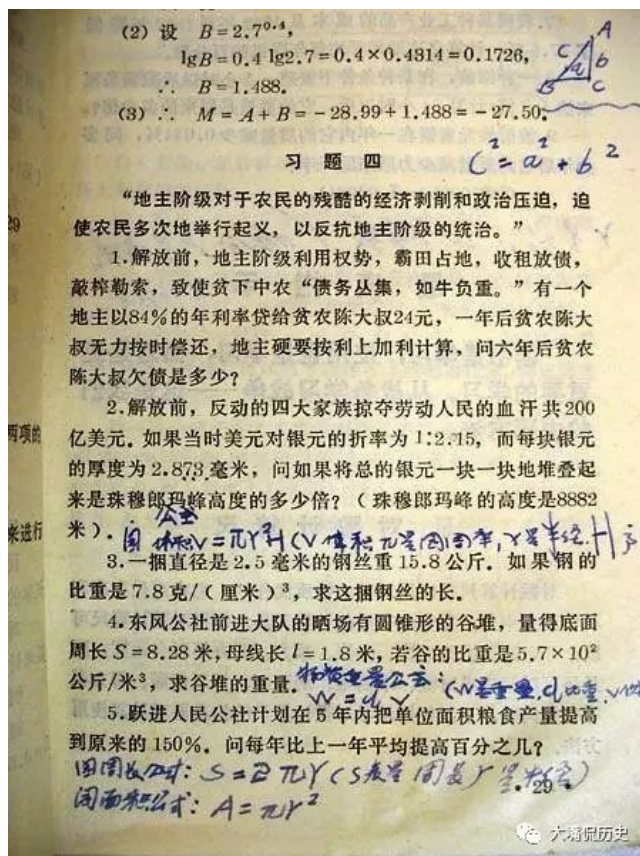 (2) 设 B=2.7⁰·⁴,
lgB=0.4 lg2.7=0.4×0.4314=0.1726,
∴ B=1.488.
(3) ∴ M=A+B=-28.99+1.488=-27.50.
A
C
b
a
B
C
c²=a²+b²
习 题 四
“地主阶级对于农民的残酷的经济剥削和政治压迫，迫
使农民多次地举行起义，以反抗地主阶级的统治。”
1.解放前，地主阶级利用权势，霸田占地，收租放债，
敲榨勒索，致使贫下中农“债务丛集，如牛负重。”有一个
地主以84%的年利率贷给贫农陈大叔24元，一年后贫农陈大
叔无力按时偿还，地主硬要按利上加利计算，问六年后贫农
陈大叔欠债是多少？
2.解放前，反动的四大家族掠夺劳动人民的血汗共200
亿美元．如果当时美元对银元的折率为1:2.15，而每块银元
的厚度为2.873毫米，问如果将总的银元一块一块地堆叠起
来是珠穆郎玛峰高度的多少倍？（珠穆郎玛峰的高度是8882
米）．
体积V=πr²H (V体积 π是圆周率, r是半径, H
3.一捆直径是2.5毫米的钢丝重15.8公斤．如果钢的
比重是7.8克/(厘米)³，求这捆钢丝的长．
4.东风公社前进大队的晒场有圆锥形的谷堆，量得底面
周长S=8.28米，母线长l=1.8米，若谷的比重是5.7×10²
公斤/米³，求谷堆的重量．
物质重量公式：
W=d,V (W是重量,d比重,V体
5.跃进人民公社计划在5年内把单位面积粮食产量提高
到原来的150%．问每年比上一年平均提高百分之几？
圆周长公式：S=2πr (S是周长r是半径)
圆面积公式：A=πr²
·29·
29
两项的
来进行
大嘴侃历史